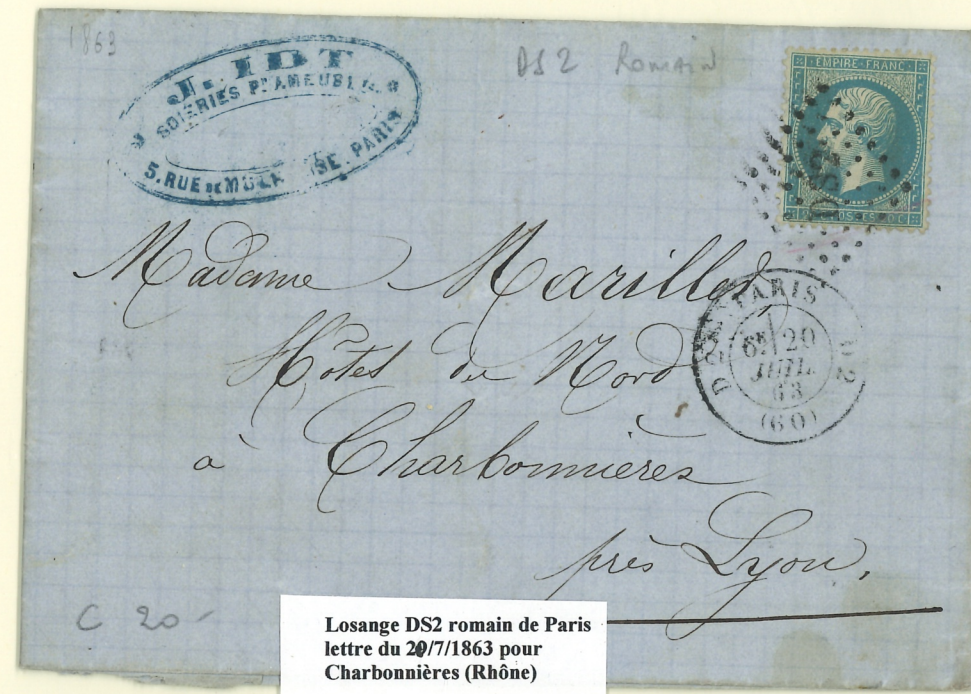 1863
DS2 Romain
J. IDT
SOIERIES P. AMEUBL
5. RUE DE PARIS
EMPIRE FRANC
DS2
Madame Marillot
Hôtel du Nord
à Charbonnières
près Lyon,
PARIS
D S2
6E 20
JUIL.
63
(60)
C 20-
Losange DS2 romain de Paris
lettre du 20/7/1863 pour
Charbonnières (Rhône)